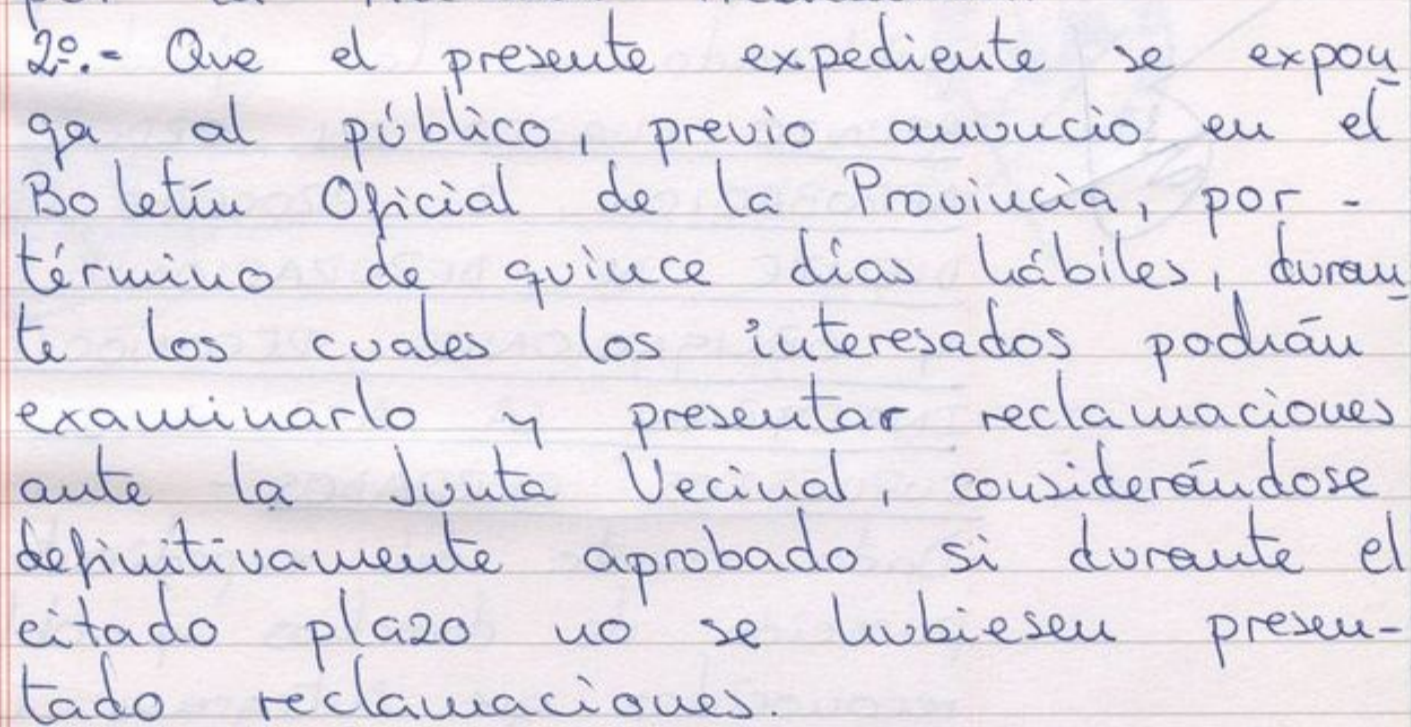 2º.- Que el presente expediente se expon
ga al público, previo anuncio en el
Boletín Oficial de la Provincia, por -
término de quince días hábiles, duran
te los cuales los interesados podrán
examinarlo y presentar reclamaciones
ante la Junta Vecinal, considerándose
definitivamente aprobado si durante el
citado plazo no se hubiesen presen-
tado reclamaciones.